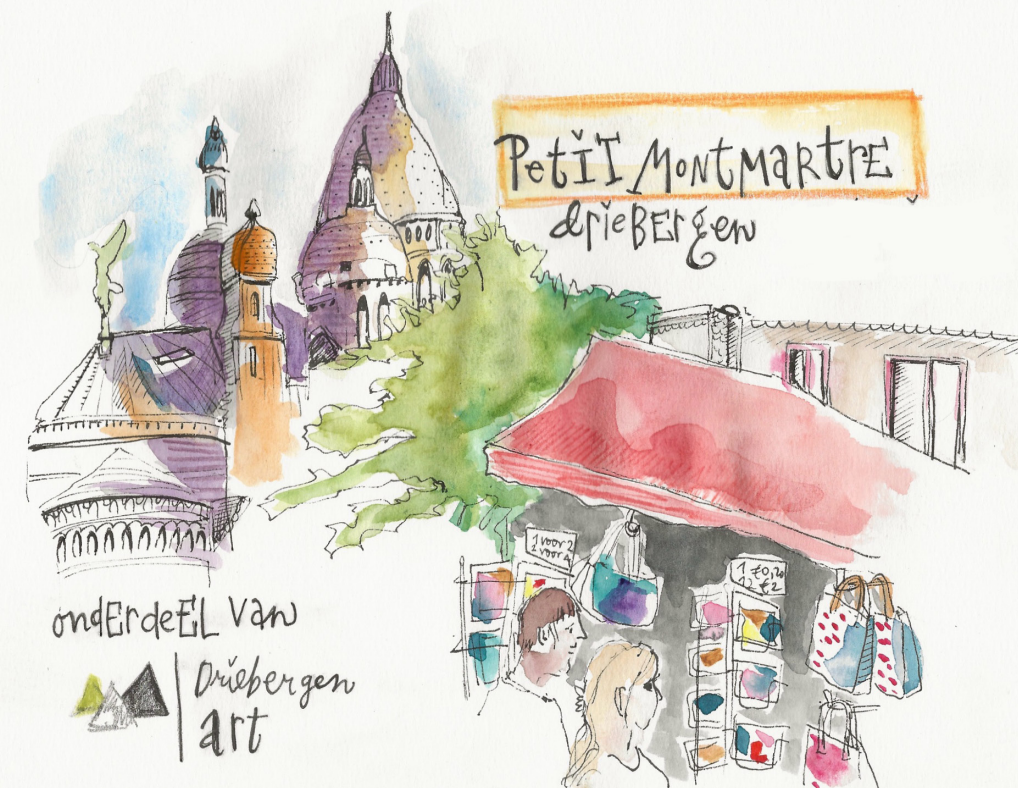 Petit Montmartre
driebergen
1 voor 2
2 voor 4
1 €0,20
12 €2
onderdeel van
Driebergen
art